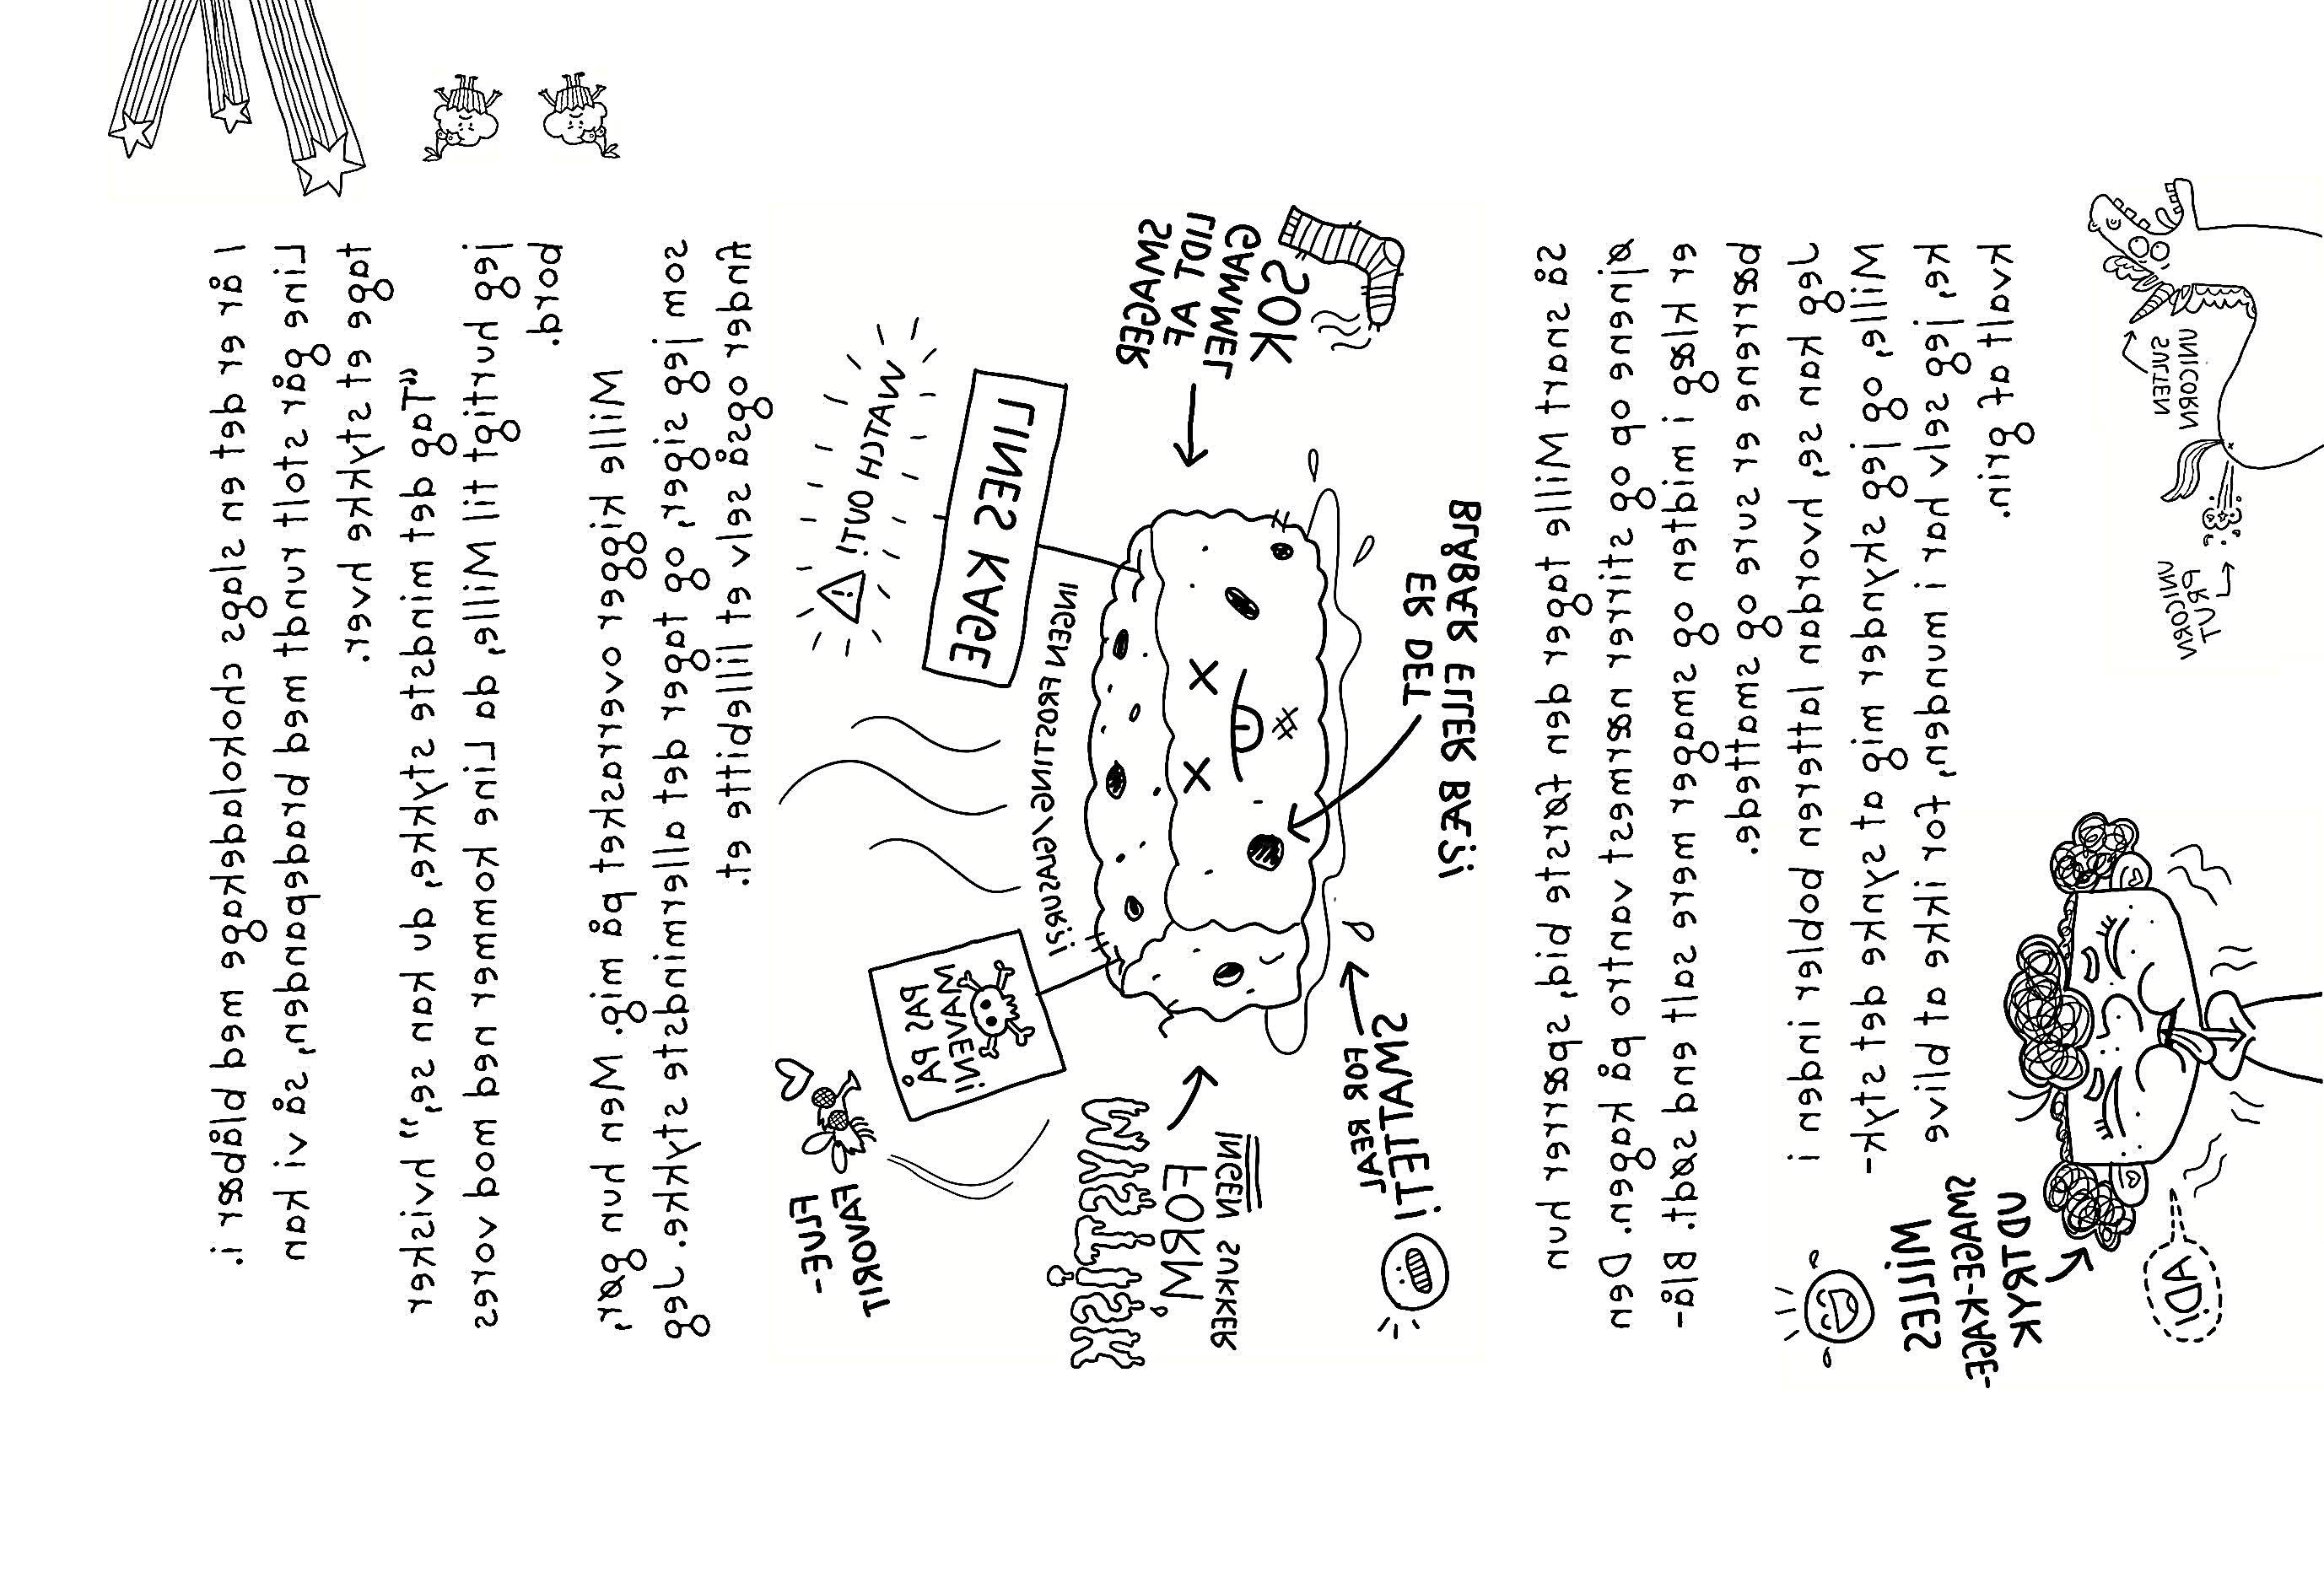 I år er det en slags chokoladekage med blåbær i.
Line går stolt rundt med bradepanden, så vi kan
tage et stykke hver.
“Tag det mindste stykke, du kan se,” hvisker
jeg hurtigt til Mille, da Line kommer ned mod vores
bord.
Mille kigger overrasket på mig. Men hun gør,
som jeg siger, og tager det allermindste stykke. Jeg
finder også selv et lillebitte et.
WATCH OUT!
LINES KAGE
PAS PÅ
MAVEN!
FLUE-
FAVORIT
INGEN FROSTING/GLASUR?!
SMAGER
LIDT AF
GAMMEL
SOK
MYSTISK
FORM,
INGEN SUKKER
ER DET
BLÅBÆR ELLER BÆ?!
JAER FOR
SMATTET!
Så snart Mille tager den første bid, spærrer hun
øjnene op og stirrer nærmest vantro på kagen. Den
er klæg i midten og smager mere salt end sødt. Blå-
bærrene er sure og smattede.
Jeg kan se, hvordan latteren bobler inden i
Mille, og jeg skynder mig at synke det styk-
ke, jeg selv har i munden, for ikke at blive
kvalt af grin.
SULTEN
UNICORN
UNICORN
PRUT
MILLES
SMAGE-KAGE-
UDTRYK
ADI!